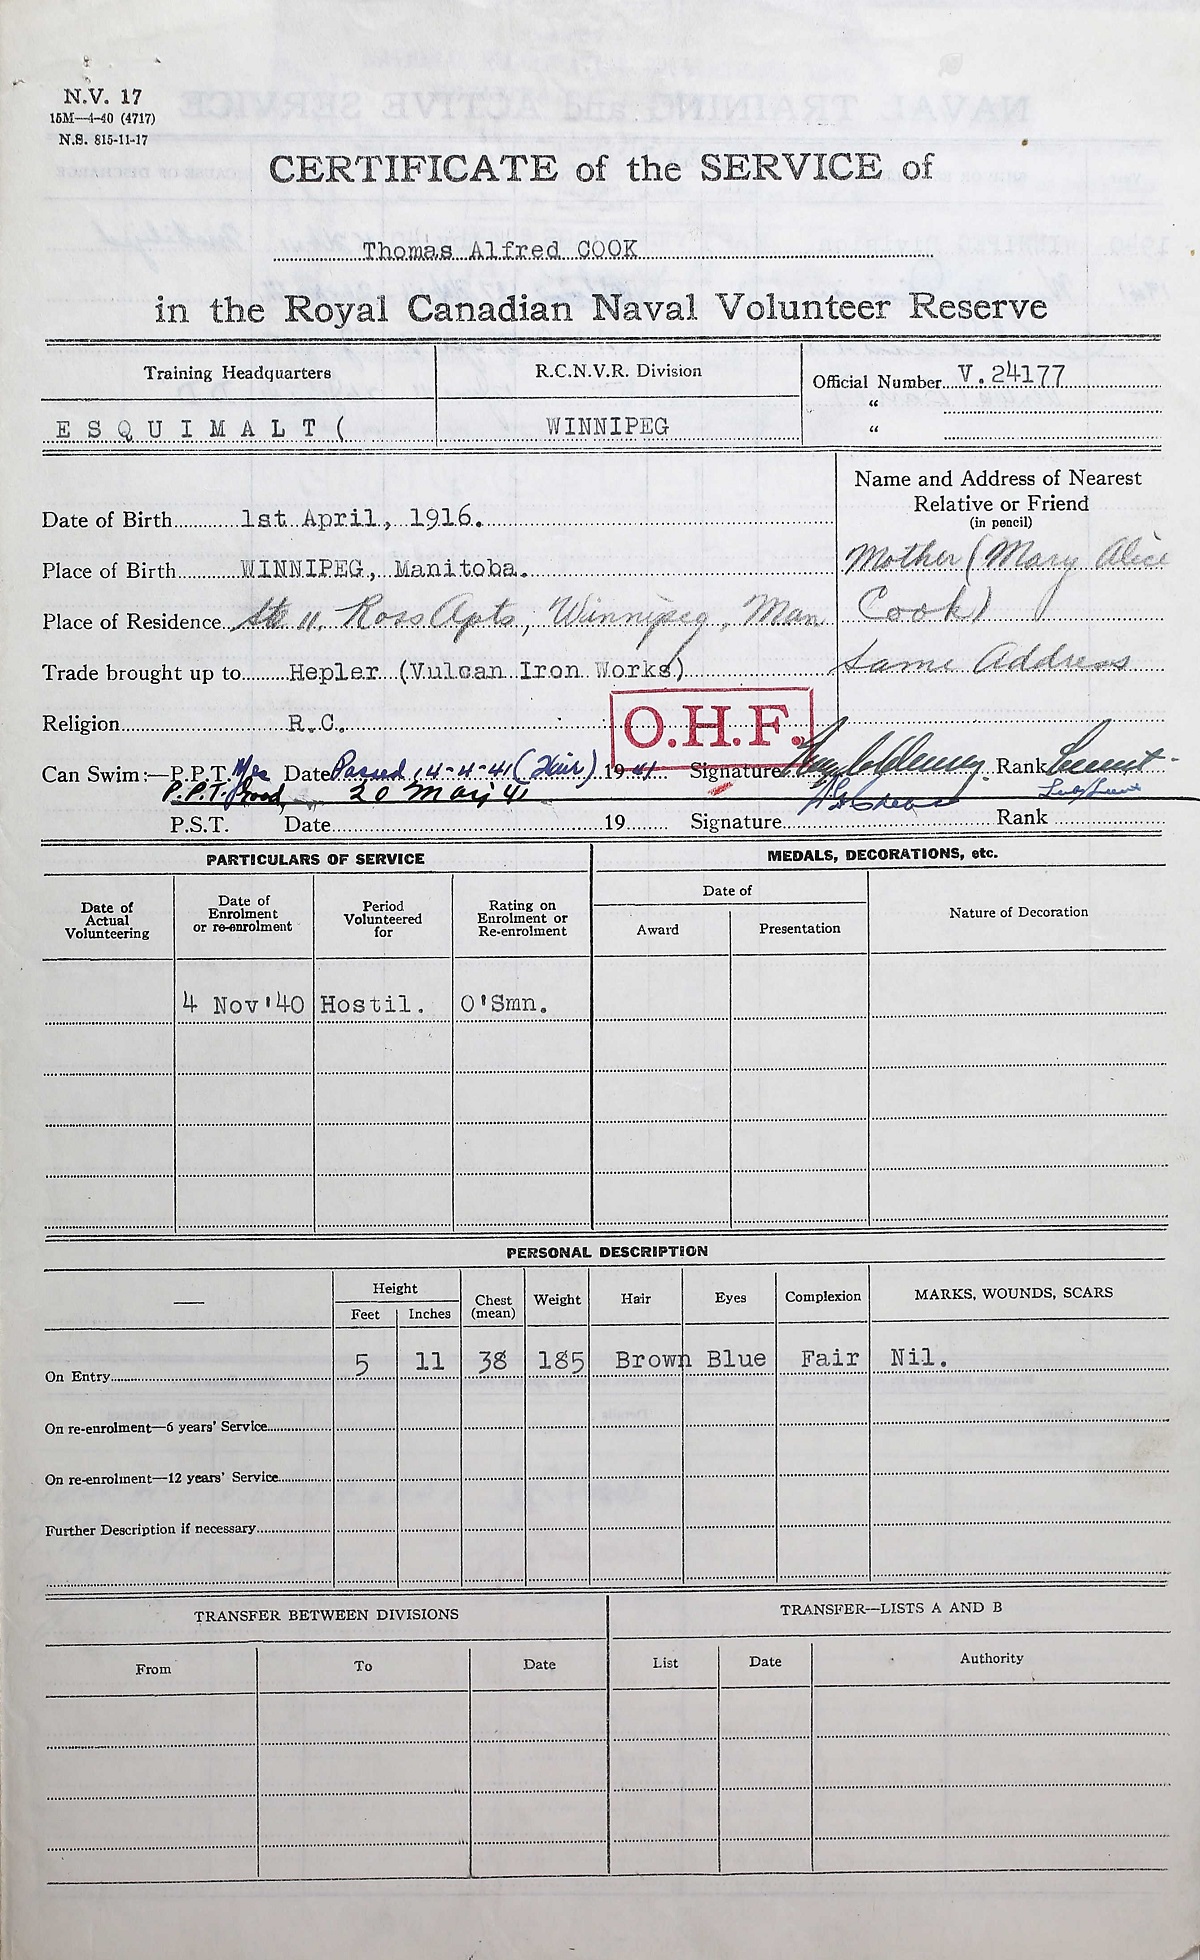 N.V. 17
15M—4-40 (4717)
N.S. 815-11-17
CERTIFICATE of the SERVICE of
Thomas Alfred COOK
in the Royal Canadian Naval Volunteer Reserve
Training Headquarters
R.C.N.V.R. Division
Official Number V.24177
"
"
E S Q U I M A L T (
WINNIPEG
Name and Address of Nearest
Relative or Friend
(in pencil)
Date of Birth 1st April, 1916.
Mother (Mary Alice
Place of Birth WINNIPEG, Manitoba.
Cook)
Place of Residence Ste 11. Ross Apts, Winnipeg, Man
Same Address
Trade brought up to Hepler (Vulcan Iron Works)
Religion R.C.
O.H.F.
Can Swim:—P.P.T. Date Passed 14-4-41 (Fair) 1941 Signature Rank
P.P.T. Good 20 May 41
P.S.T. Date 19 Signature Rank
PARTICULARS OF SERVICE
MEDALS, DECORATIONS, etc.
Date of
Actual
Volunteering
Date of
Enrolment
or re-enrolment
Period
Volunteered
for
Rating on
Enrolment or
Re-enrolment
Date of
Award
Presentation
Nature of Decoration
4 Nov'40 Hostil. O'Smn.
PERSONAL DESCRIPTION
—
Height
Feet
Inches
Chest
(mean)
Weight
Hair
Eyes
Complexion
MARKS, WOUNDS, SCARS
On Entry 5 11 38 185 Brown Blue Fair Nil.
On re-enrolment—6 years' Service
On re-enrolment—12 years' Service
Further Description if necessary
TRANSFER BETWEEN DIVISIONS
TRANSFER—LISTS A AND B
From
To
Date
List
Date
Authority